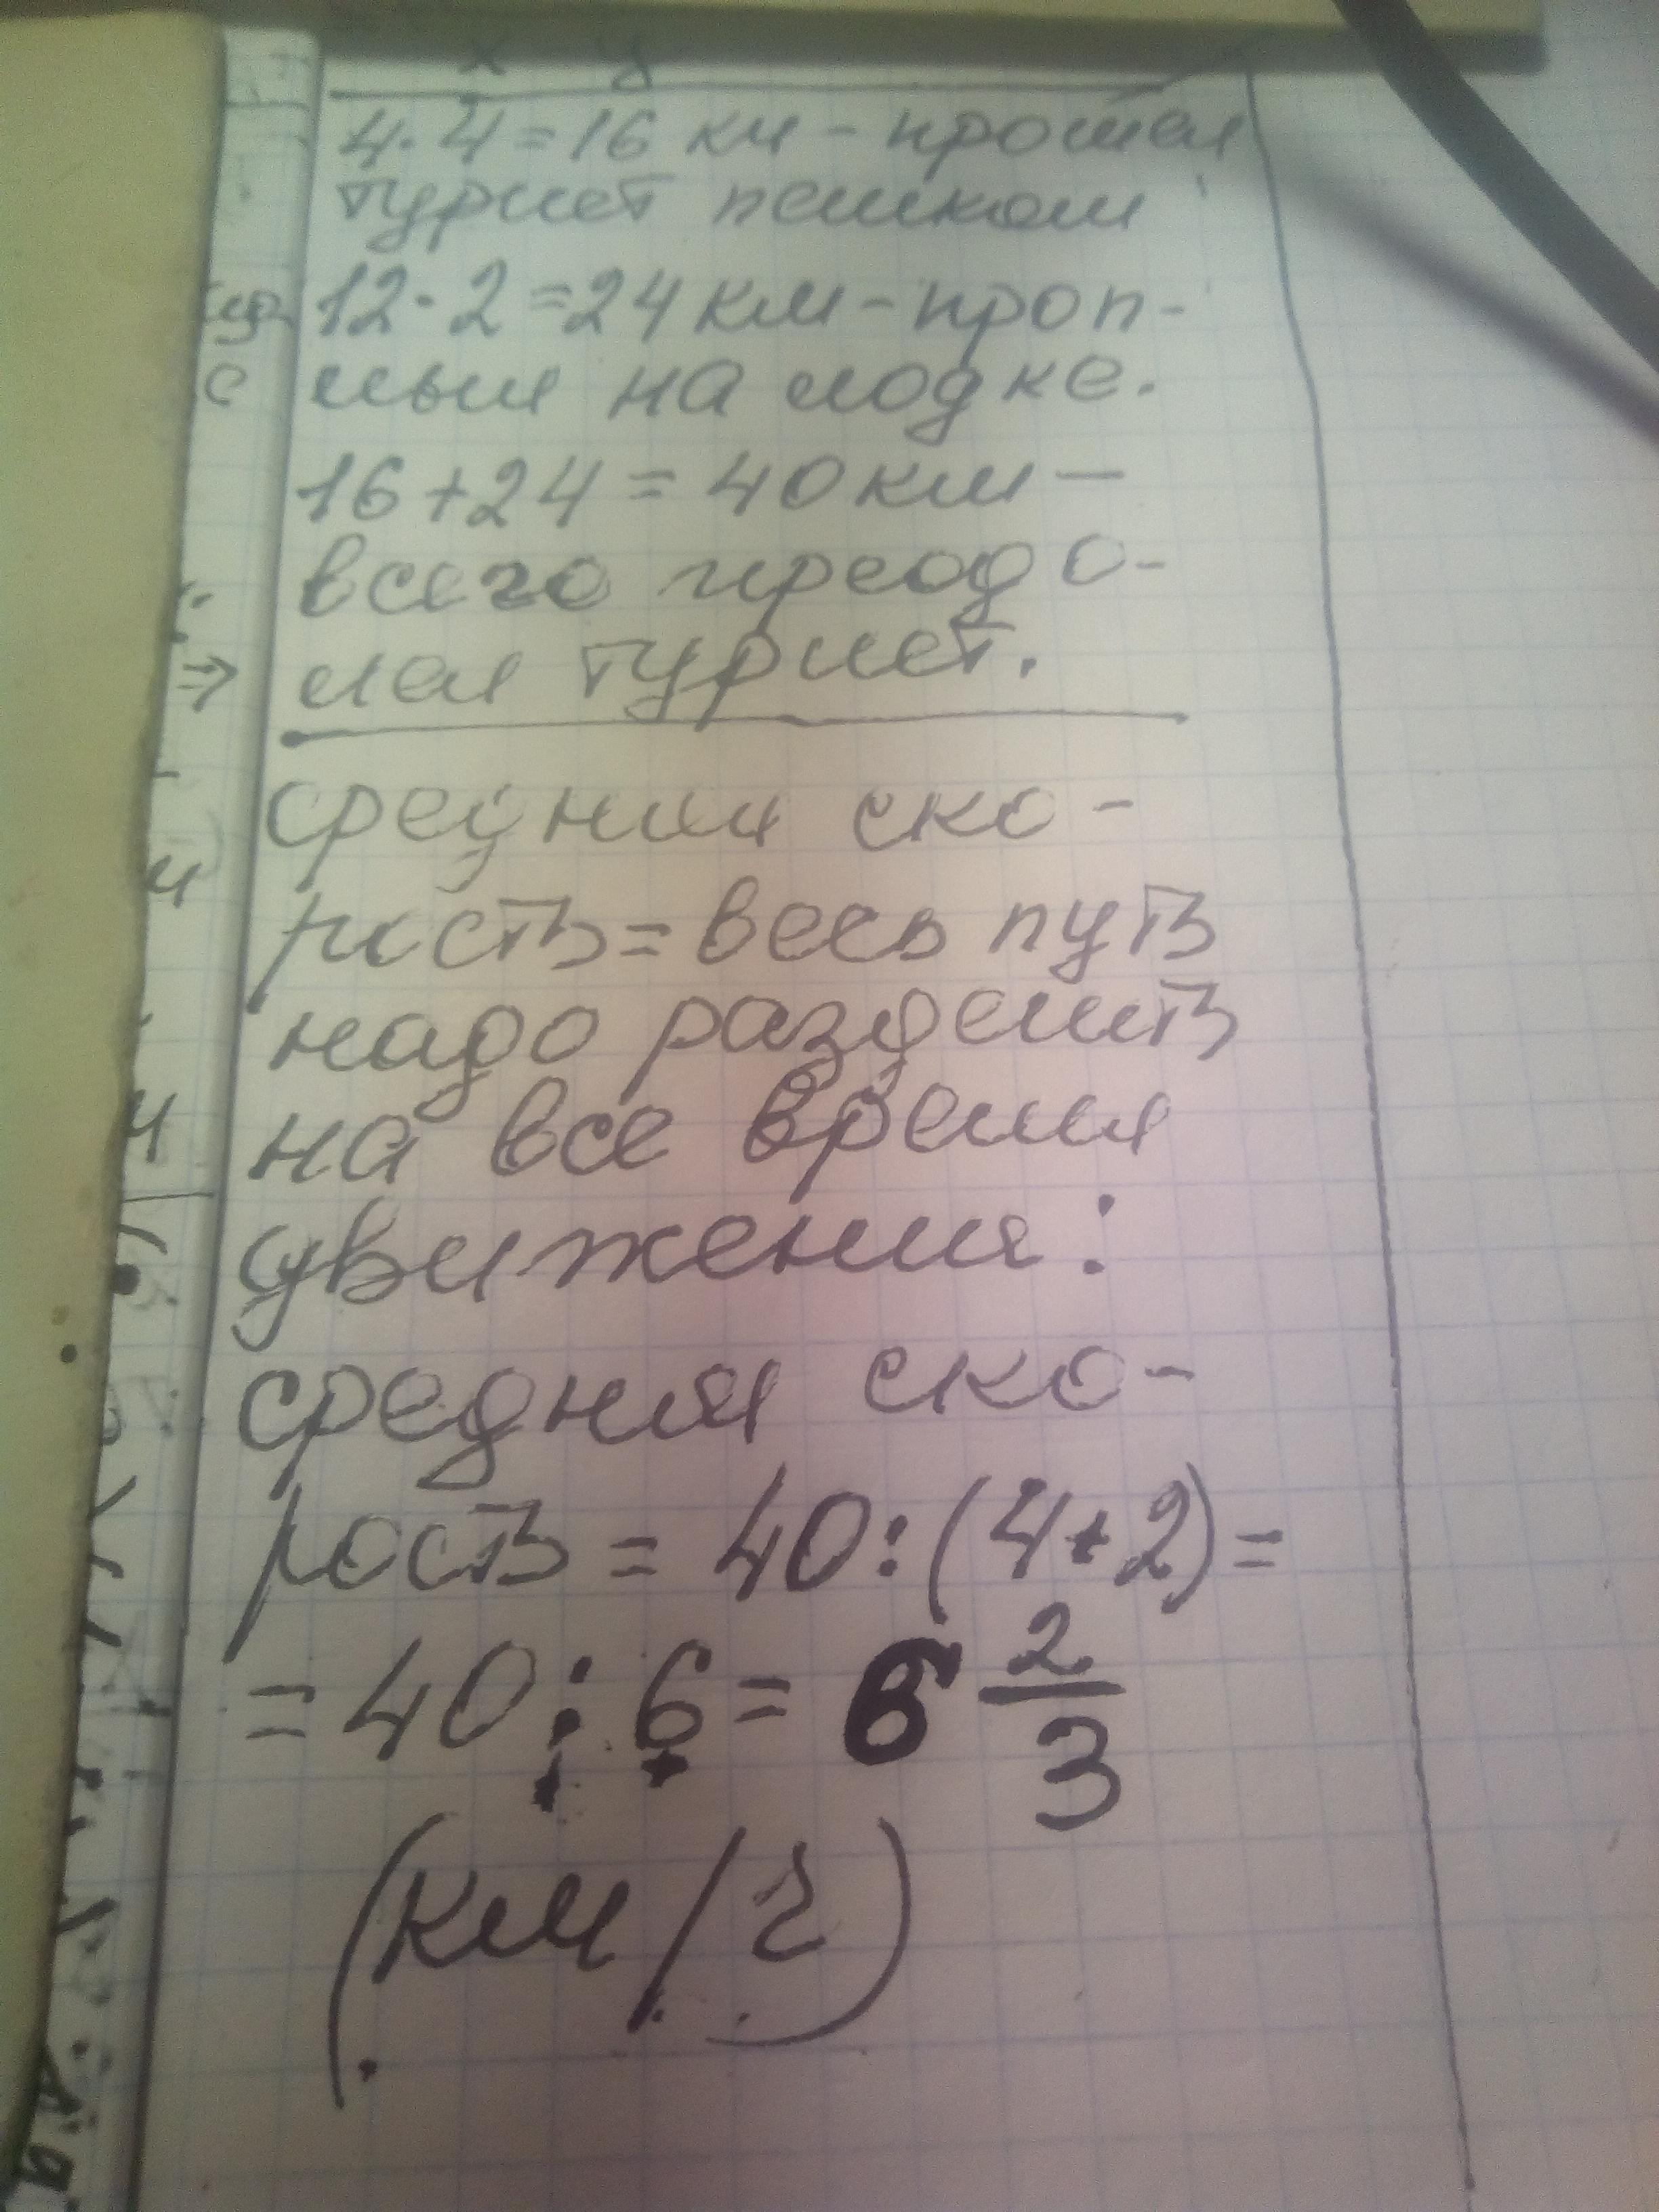 x y
4·4=16 км-прошел
турист пешком
12·2=24 км-проп-
лыл на лодке.
16+24=40 км—
всего преодо-
лел турист.
средняя ско-
рость=весь путь
надо разделить
на все время
движения:
средняя ско-
рость = 40:(4+2)=
=40:6= 6 2/3
(км/г)